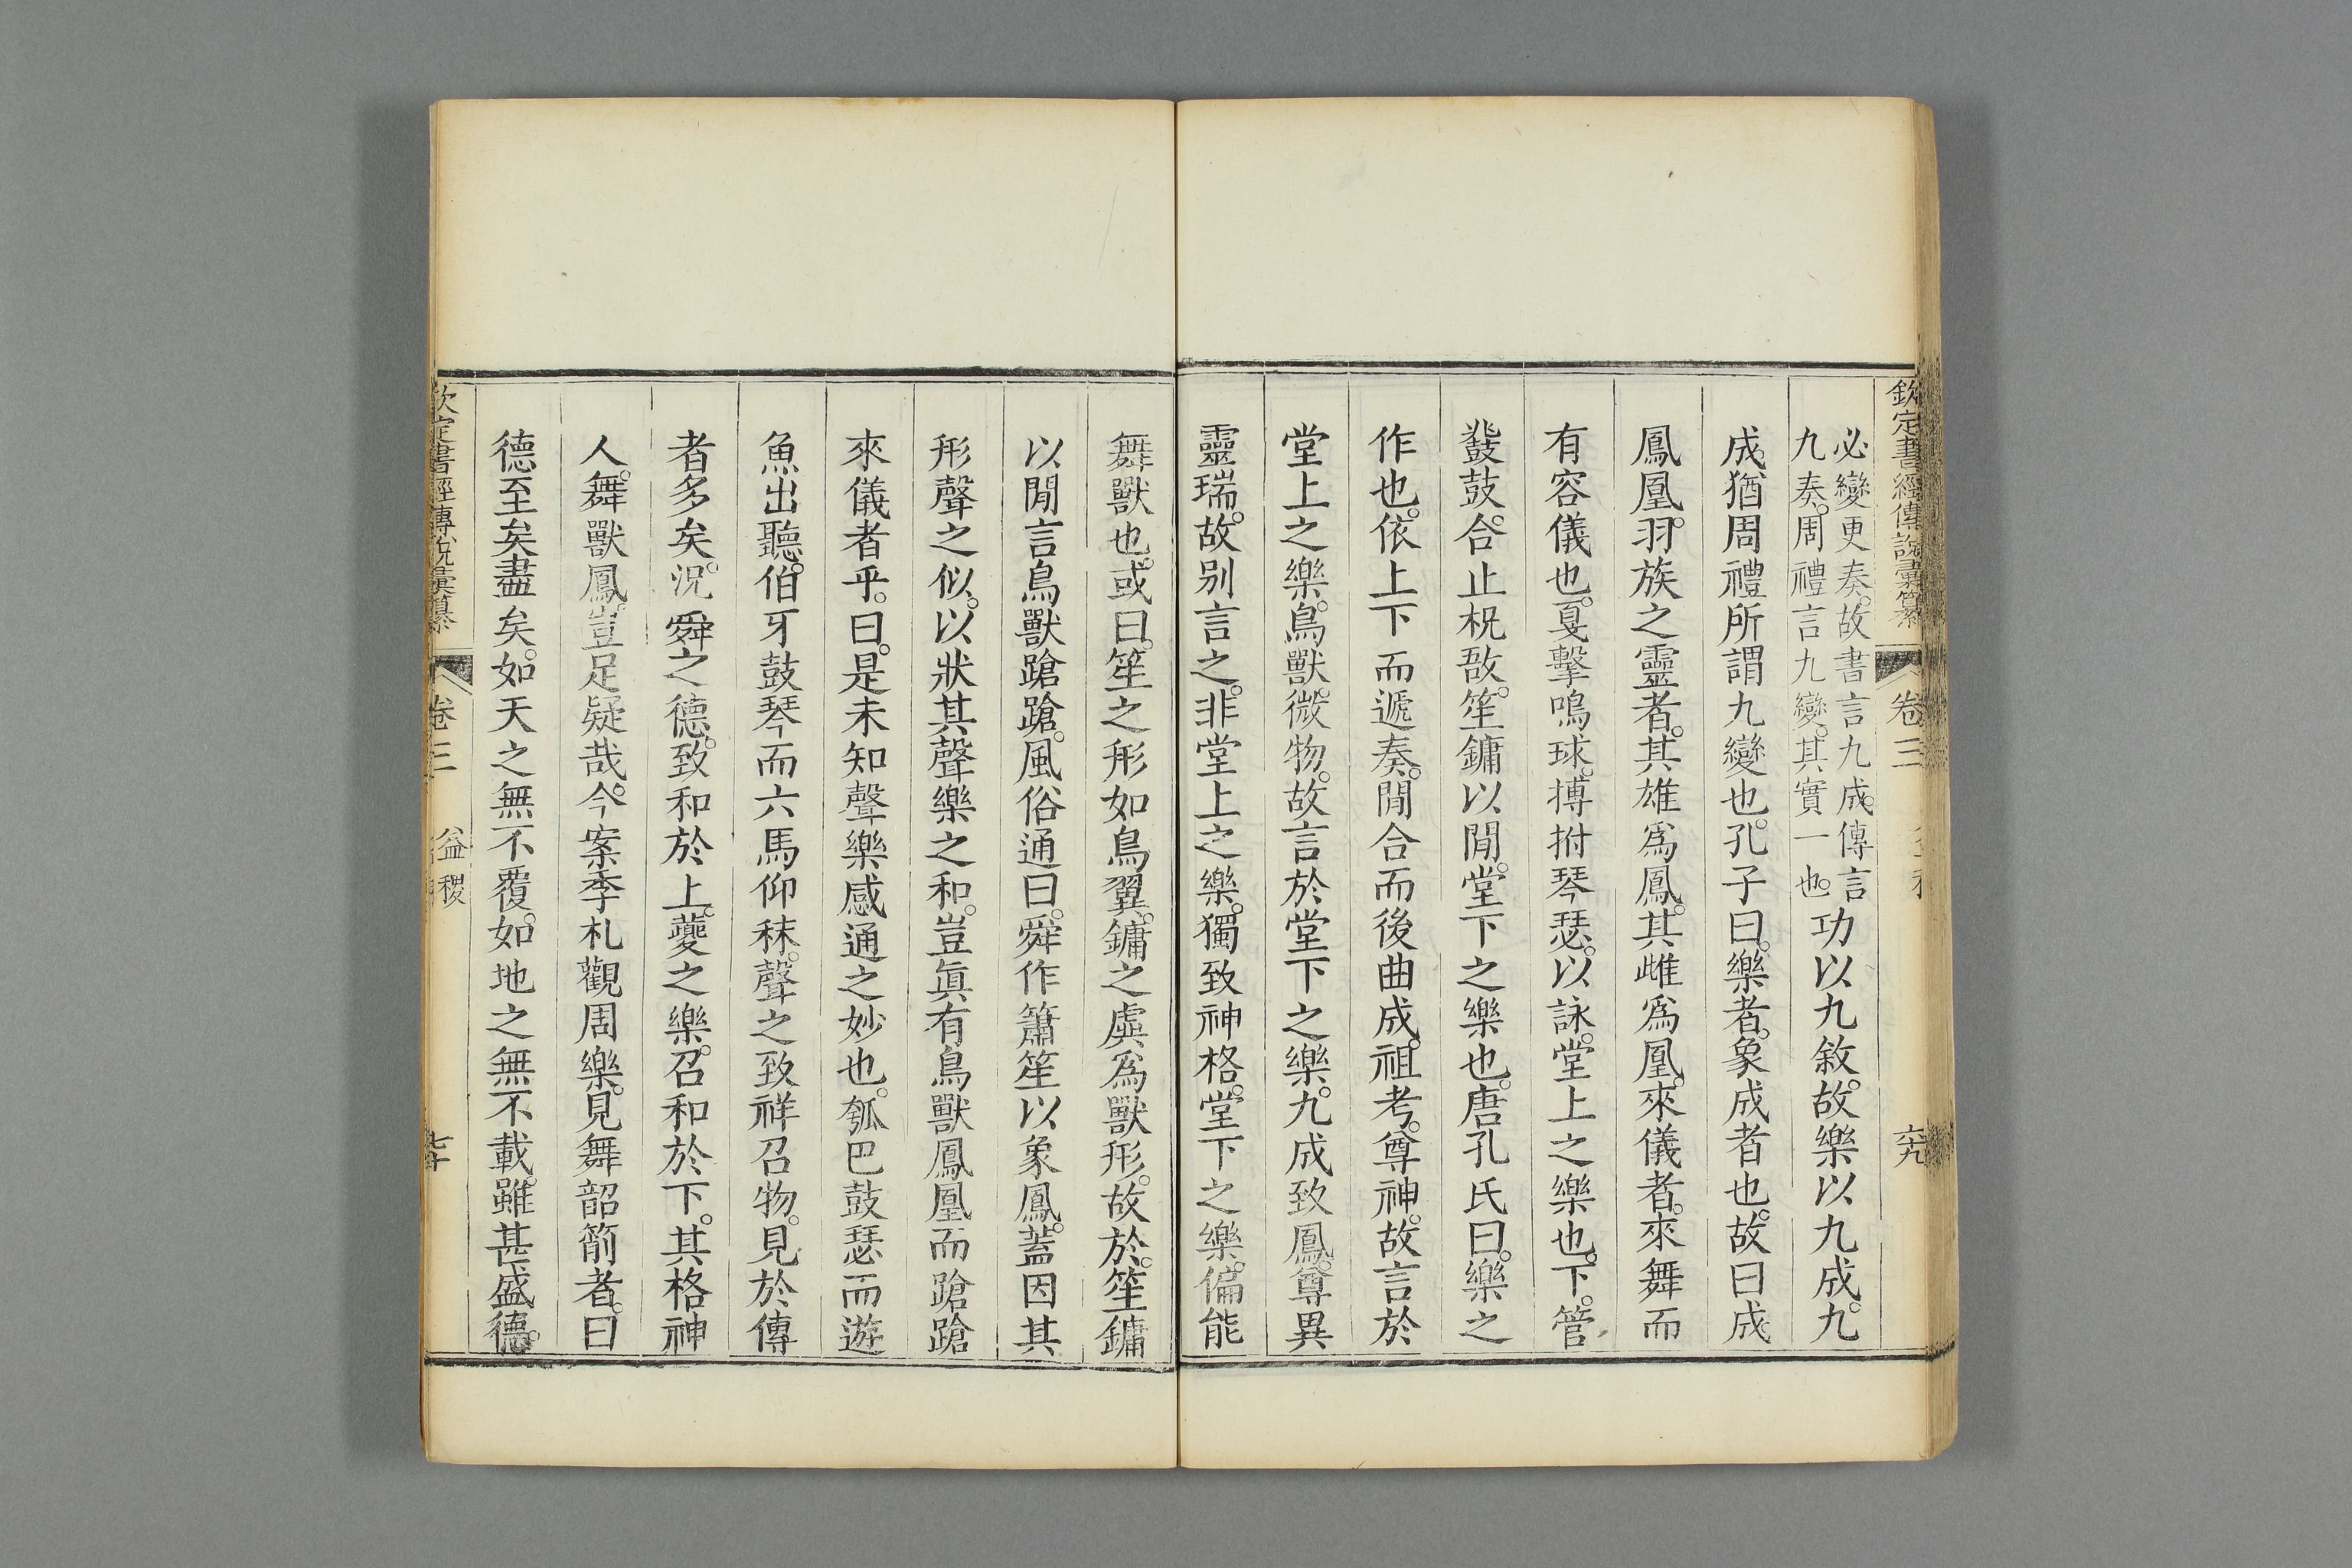 欽定書經傳說彙纂 卷三 六九
必變更奏。故書言九成。傳言
九奏。周禮言九變。其實一也。
功以九敘。故樂以九成。九
成。猶周禮所謂九變也。孔子曰。樂者。象成者也。故曰成
鳳凰。羽族之靈者。其雄爲鳳。其雌爲凰。來儀者。來舞而
有容儀也。戛擊鳴球。搏拊琴瑟。以詠。堂上之樂也。下。管
鼗鼓。合止柷敔。笙鏞以閒。堂下之樂也。唐孔氏曰。樂之
作也。依上下而遞奏。閒合而後曲成。祖考。尊神。故言於
堂上之樂。鳥獸。微物。故言於堂下之樂。九成致鳳。尊異
靈瑞。故別言之。非堂上之樂。獨致神格。堂下之樂。偏能
舞獸也。或曰。笙之形如鳥翼。鏞之虡爲獸形。故於。笙鏞
以閒言鳥獸蹌蹌。風俗通曰。舜作簫笙以象鳳。蓋因其
形聲之似。以狀其聲樂之和。豈眞有鳥獸鳳凰而蹌蹌
來儀者乎。曰。是未知聲樂感通之妙也。瓠巴鼓瑟而遊
魚出聽。伯牙鼓琴而六馬仰秣。聲之致祥召物。見於傳
者多矣。況舜之德。致和於上。夔之樂。召和於下。其格神
人。舞獸鳳。豈足疑哉。今案季札觀周樂。見舞韶箾者。曰
德至矣盡矣。如天之無不覆。如地之無不載。雖甚盛德。
欽定書經傳說彙纂 卷三 益稷 七十